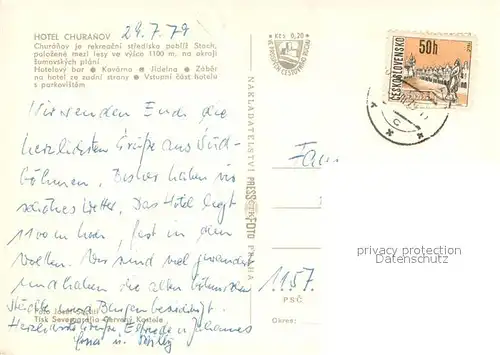 HOTEL CHURÁŇOV
29.7.79
Churáňov je rekreační středisko poblíž Stach,
položené mezi lesy ve výšce 1100 m, na okraji
šumavských plání
Hotelový bar • Kavárna • Jídelna • Záběr
na hotel ze zadní strany • Vstupní část hotelu
s parkovištěm
Kčs 0,20
VE PROSPĚCH CESTOVNÍHO RUCHU
ČESKOSLOVENSKO
50h
NAKLADATELSTVÍ PRESSFOTO PRAHA
Wir senden Euch die
herzlichsten Grüße aus Süd-
böhmen. Bisher haben wir
schönes Wetter. Das Hotel liegt
1100 m hoch, fast in den
Wolken. Wir sind viel gewandert
und haben die alten böhmischen
Städte und Burgen besichtigt.
Herzliche Grüße,
Lena u. Willy
Fam
1157.
PSČ
Okres:
Foto Josef
Tisk Severografia Červený Kostelec
privacy protection